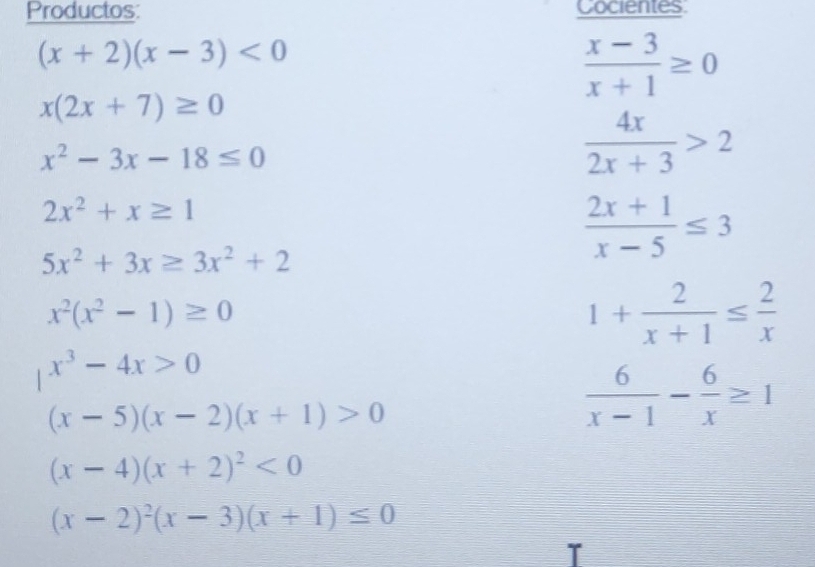 Productos:
(x + 2)(x − 3) < 0
x(2x + 7) ≥ 0
x² − 3x − 18 ≤ 0
2x² + x ≥ 1
5x² + 3x ≥ 3x² + 2
x²(x² − 1) ≥ 0
x³ − 4x > 0
(x − 5)(x − 2)(x + 1) > 0
(x − 4)(x + 2)² < 0
(x − 2)²(x − 3)(x + 1) ≤ 0
Cocientes:
(x − 3)/(x + 1) ≥ 0
4x/(2x + 3) > 2
(2x + 1)/(x − 5) ≤ 3
1 + 2/(x + 1) ≤ 2/x
6/(x − 1) − 6/x ≥ 1